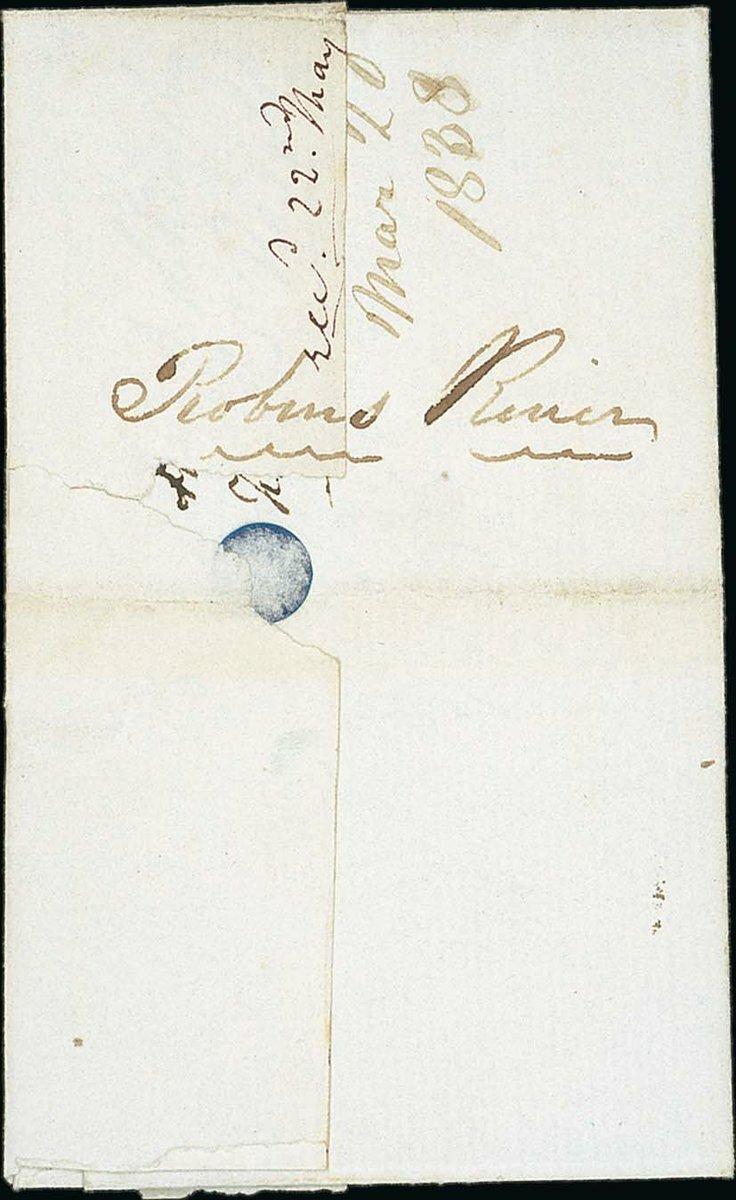 recd. 22nd. May
Mar 20
1838
Robins River